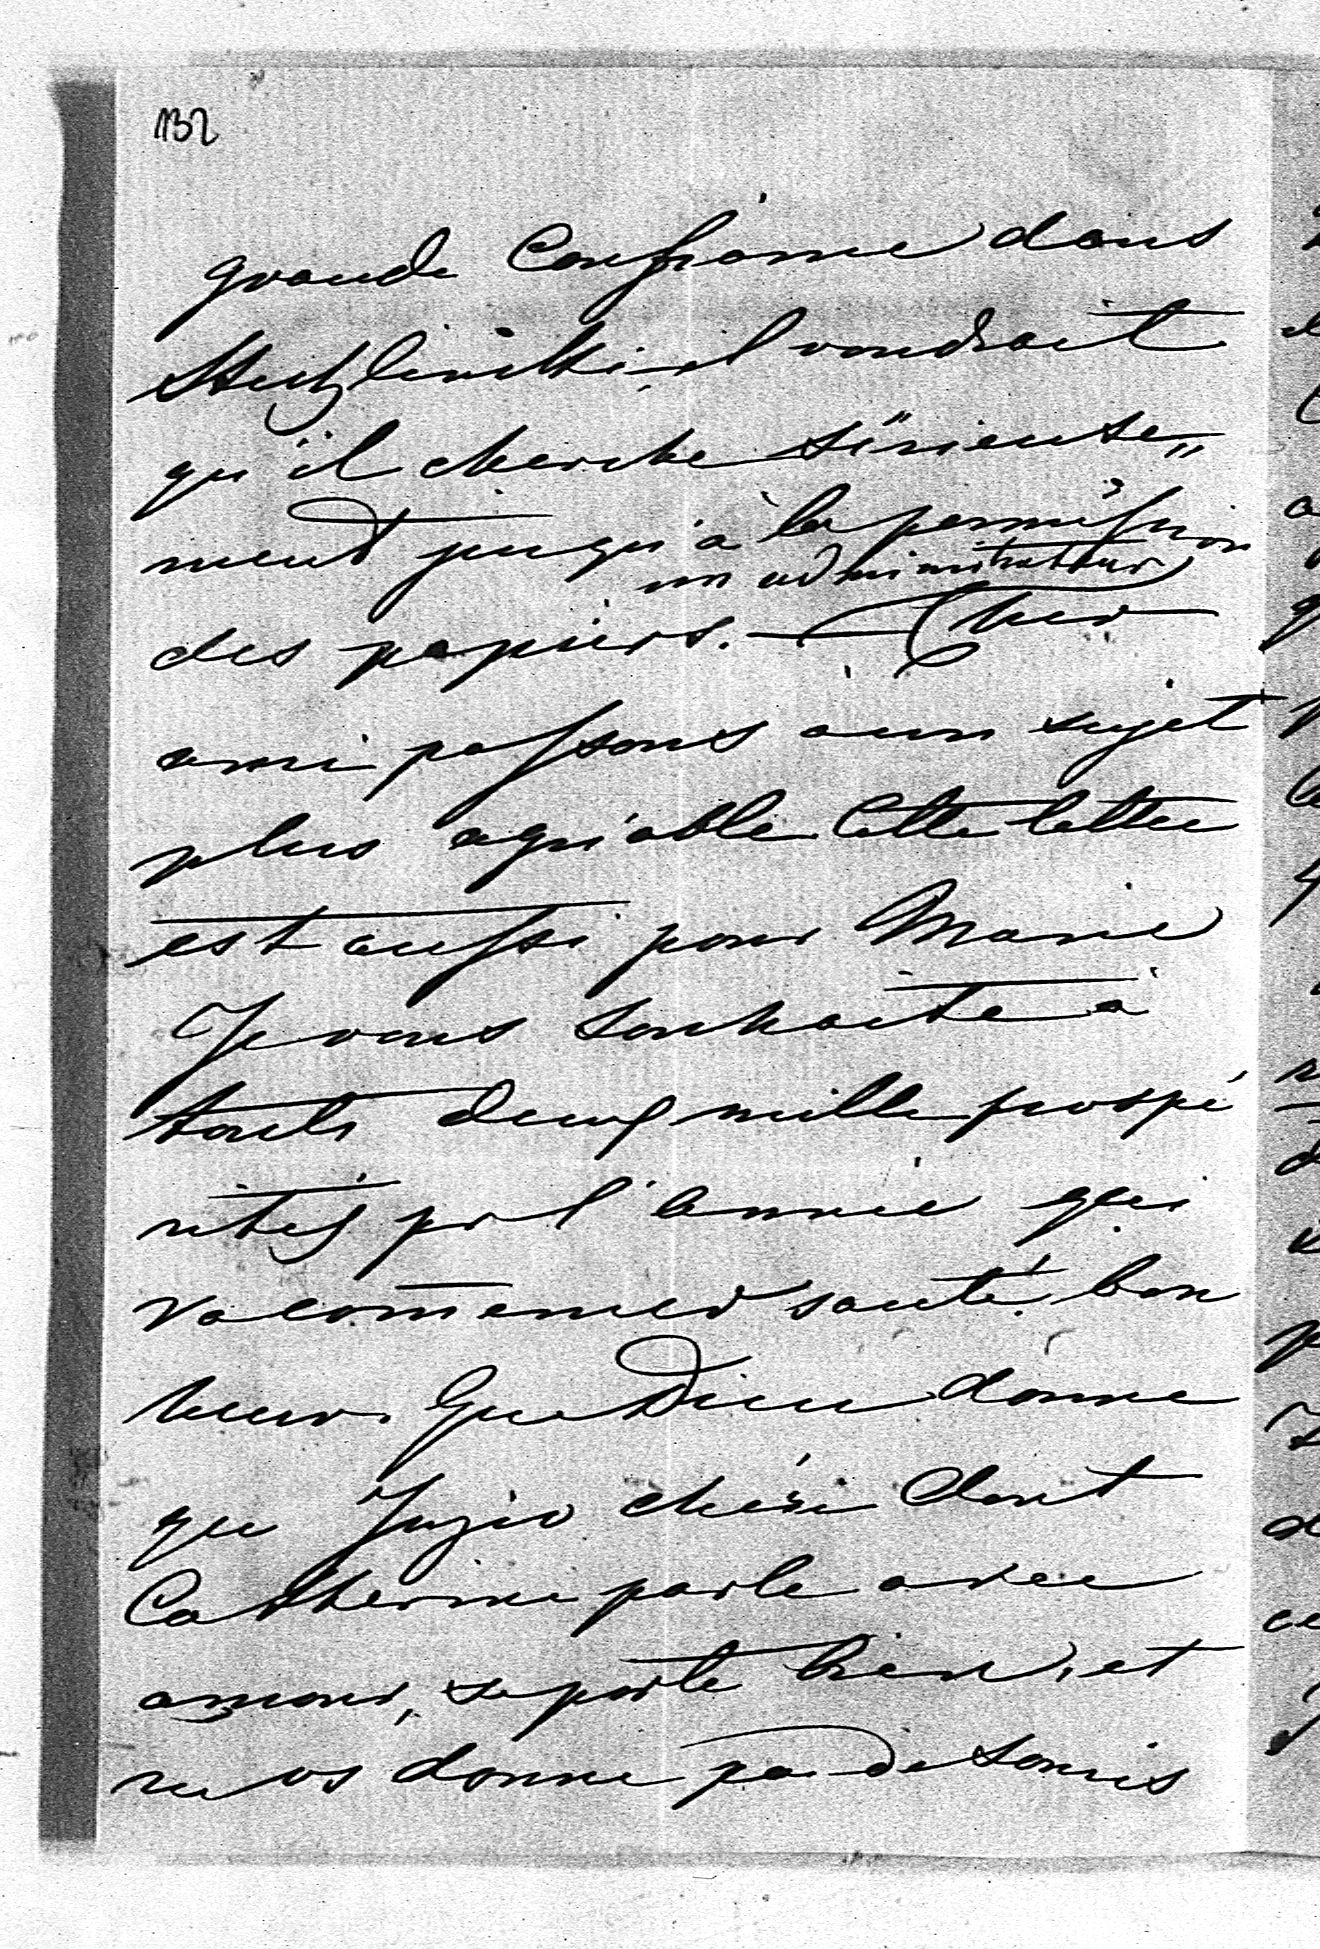 132
grande confiance dans
il voudrait
qu'il cherche sérieuse„
ment jusqu'à la permission
un administrateur
des papiers. — Cher
ami passons à un sujet
plus agréable Cette lettre
est aussi pour Marie
Je vous souhaite à
touts deux mille prospé
rités pr l'année qui
va comencer santé bon
heur. Que Dieu donne
que Juzio chéri dont
Catherine parle avec
amour, se porte bien, et
ne vs donne pas de soucis